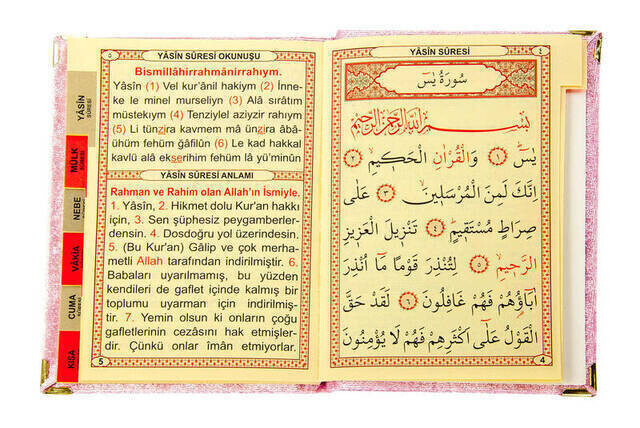 ٥ YÂSİN SÛRESİ OKUNUŞU
Bismillâhirrahmânirrahıym.
Yâsîn (1) Vel kur'ânil hakiym (2) İnne-
ke le minel murseliyn (3) Alâ sırâtım
müstekıym (4) Tenziylel aziyzir rahıym
(5) Li tünzira kavmem mâ ünzira âbâ-
ühüm fehüm ğâfilûn (6) Le kad hakkal
kavlü alâ ekserihim fehüm lâ yü'minûn
YÂSİN SÛRESİ ANLAMI
Rahman ve Rahim olan Allah'ın İsmiyle.
1. Yâsîn, 2. Hikmet dolu Kur'an hakkı
için, 3. Sen şüphesiz peygamberler-
densin. 4. Dosdoğru yol üzerindesin.
5. (Bu Kur'an) Gâlip ve çok merha-
metli Allah tarafından indirilmiştir. 6.
Babaları uyarılmamış, bu yüzden
kendileri de gaflet içinde kalmış bir
toplumu uyarman için indirilmiş-
tir. 7. Yemin olsun ki onların çoğu
gafletlerinin cezasını hak etmişler-
dir. Çünkü onlar îman etmiyorlar.
5
YÂSİN
SÛRESİ
MÜLK
SÛRESİ
NEBE
VÂKIA
CUMA
KISA
YÂSİN SÛRESİ ٤
سُورَةُ يٰسٓ
بِسْمِ اللّٰهِ الرَّحْمٰنِ الرَّحِيمِ
يٰسٓ ﴿١﴾ وَالْقُرْاٰنِ الْحَكِيمِ ﴿٢﴾
اِنَّكَ لَمِنَ الْمُرْسَلِينَ ﴿٣﴾ عَلٰى
صِرَاطٍ مُسْتَقِيمٍ ﴿٤﴾ تَنْزِيلَ الْعَزِيزِ
الرَّحِيمِ ﴿٥﴾ لِتُنْذِرَ قَوْمًا مَٓا اُنْذِرَ
اٰبَٓاؤُهُمْ فَهُمْ غَافِلُونَ ﴿٦﴾ لَقَدْ حَقَّ
الْقَوْلُ عَلٰٓى اَكْثَرِهِمْ فَهُمْ لَا يُؤْمِنُونَ
4